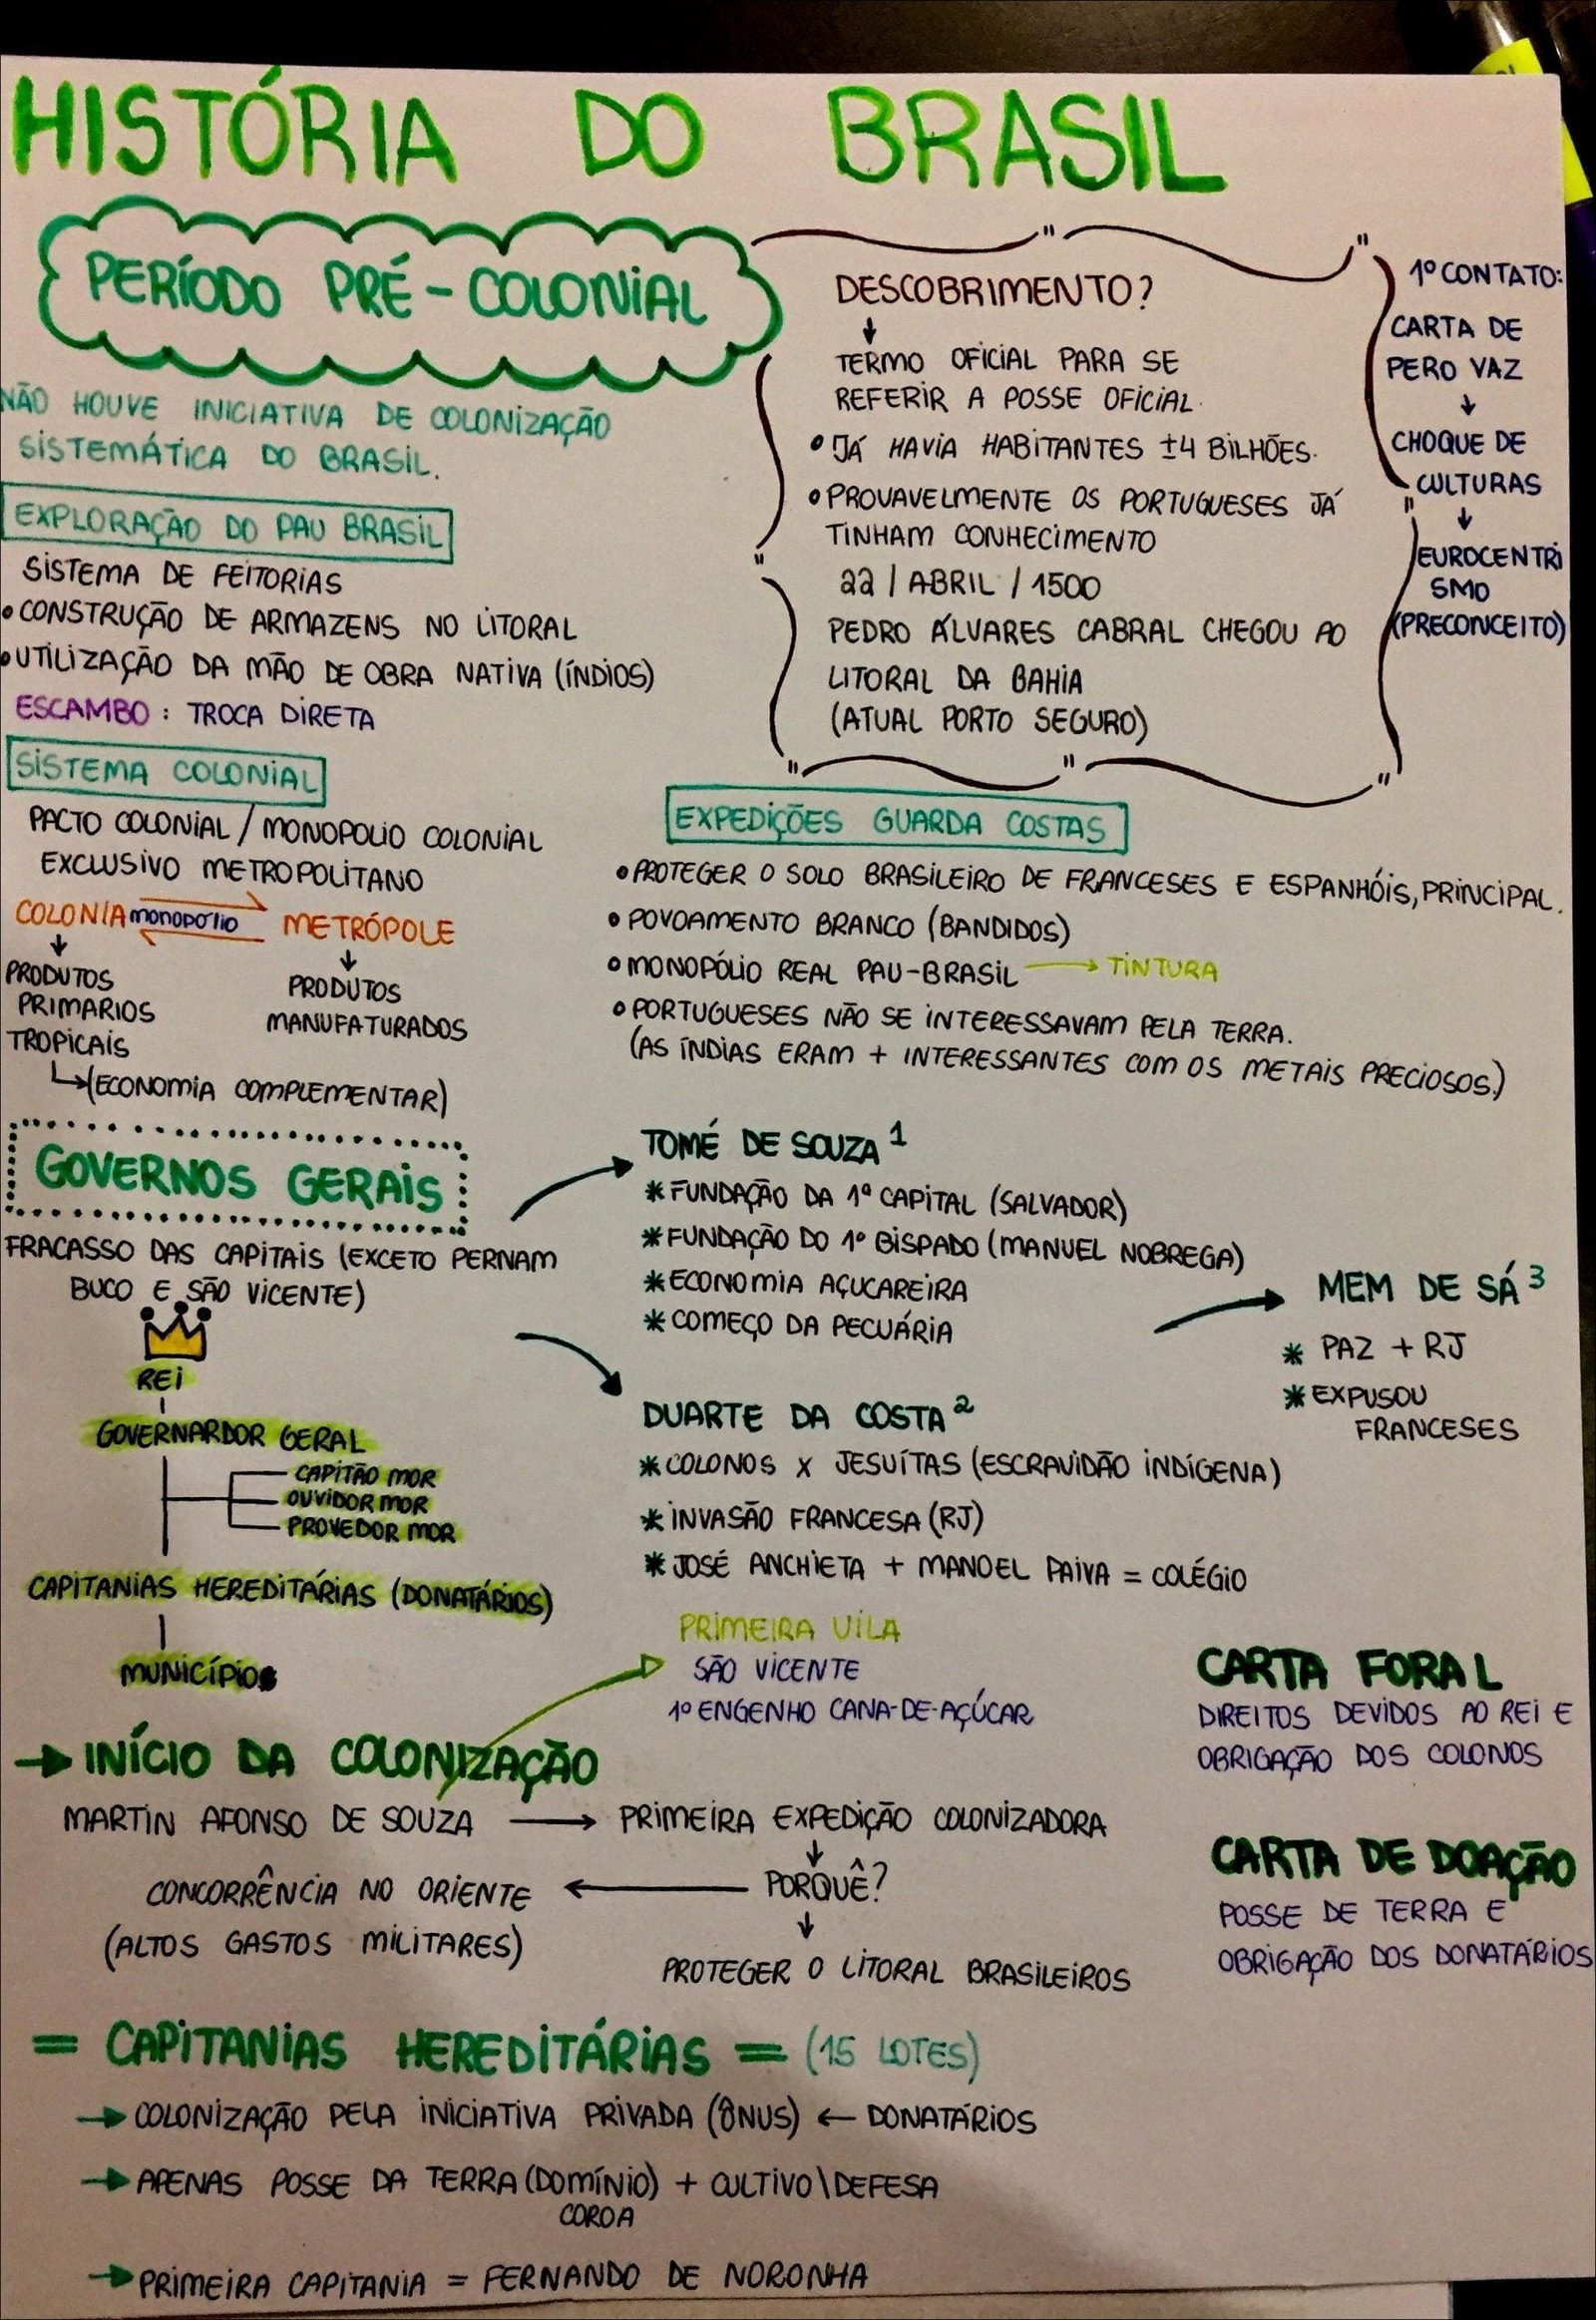 HISTÓRIA DO BRASIL
PERÍODO PRÉ-COLONIAL
NÃO HOUVE INICIATIVA DE COLONIZAÇÃO
SISTEMÁTICA DO BRASIL.
EXPLORAÇÃO DO PAU BRASIL
SISTEMA DE FEITORIAS
•CONSTRUÇÃO DE ARMAZENS NO LITORAL
•UTILIZAÇÃO DA MÃO DE OBRA NATIVA (ÍNDIOS)
ESCAMBO: TROCA DIRETA
DESCOBRIMENTO?
↓
TERMO OFICIAL PARA SE
REFERIR A POSSE OFICIAL.
•JÁ HAVIA HABITANTES ±4 BILHÕES.
•PROVAVELMENTE OS PORTUGUESES JÁ
TINHAM CONHECIMENTO
22 / ABRIL / 1500
PEDRO ÁLVARES CABRAL CHEGOU AO
LITORAL DA BAHIA
(ATUAL PORTO SEGURO)
1º CONTATO:
CARTA DE
PERO VAZ
↓
CHOQUE DE
CULTURAS
↓
EUROCENTRI
SMO
(PRECONCEITO)
SISTEMA COLONIAL
PACTO COLONIAL / MONOPOLIO COLONIAL
EXCLUSIVO METROPOLITANO
COLONIA monopólio METRÓPOLE
↓
PRODUTOS
PRIMARIOS
TROPICAIS
↳(ECONOMIA COMPLEMENTAR)
↓
PRODUTOS
MANUFATURADOS
EXPEDIÇÕES GUARDA COSTAS
•PROTEGER O SOLO BRASILEIRO DE FRANCESES E ESPANHÓIS, PRINCIPAL.
•POVOAMENTO BRANCO (BANDIDOS)
•MONOPÓLIO REAL PAU-BRASIL → TINTURA
•PORTUGUESES NÃO SE INTERESSAVAM PELA TERRA.
(AS ÍNDIAS ERAM + INTERESSANTES COM OS METAIS PRECIOSOS.)
GOVERNOS GERAIS
FRACASSO DAS CAPITAIS (EXCETO PERNAM
BUCO E SÃO VICENTE)
REI
GOVERNARDOR GERAL
CAPITÃO MOR
OUVIDOR MOR
PROVEDOR MOR
CAPITANIAS HEREDITÁRIAS (DONATÁRIOS)
MUNICÍPIOS
TOMÉ DE SOUZA 1
*FUNDAÇÃO DA 1ª CAPITAL (SALVADOR)
*FUNDAÇÃO DO 1º BISPADO (MANUEL NOBREGA)
*ECONOMIA AÇUCAREIRA
*COMEÇO DA PECUÁRIA
DUARTE DA COSTA 2
*COLONOS X JESUÍTAS (ESCRAVIDÃO INDÍGENA)
*INVASÃO FRANCESA (RJ)
*JOSÉ ANCHIETA + MANOEL PAIVA = COLÉGIO
MEM DE SÁ 3
* PAZ + RJ
*EXPUSOU
FRANCESES
PRIMEIRA VILA
SÃO VICENTE
1º ENGENHO CANA-DE-AÇÚCAR
CARTA FORAL
DIREITOS DEVIDOS AO REI E
OBRIGAÇÃO DOS COLONOS
→ INÍCIO DA COLONIZAÇÃO
MARTIN AFONSO DE SOUZA → PRIMEIRA EXPEDIÇÃO COLONIZADORA
↓
CONCORRÊNCIA NO ORIENTE ← PORQUÊ?
(ALTOS GASTOS MILITARES)
↓
PROTEGER O LITORAL BRASILEIROS
CARTA DE DOAÇÃO
POSSE DE TERRA E
OBRIGAÇÃO DOS DONATÁRIOS
= CAPITANIAS HEREDITÁRIAS = (15 LOTES)
→ COLONIZAÇÃO PELA INICIATIVA PRIVADA (ÔNUS) ← DONATÁRIOS
→ APENAS POSSE DA TERRA (DOMÍNIO) + CULTIVO\DEFESA
COROA
→ PRIMEIRA CAPITANIA = FERNANDO DE NORONHA